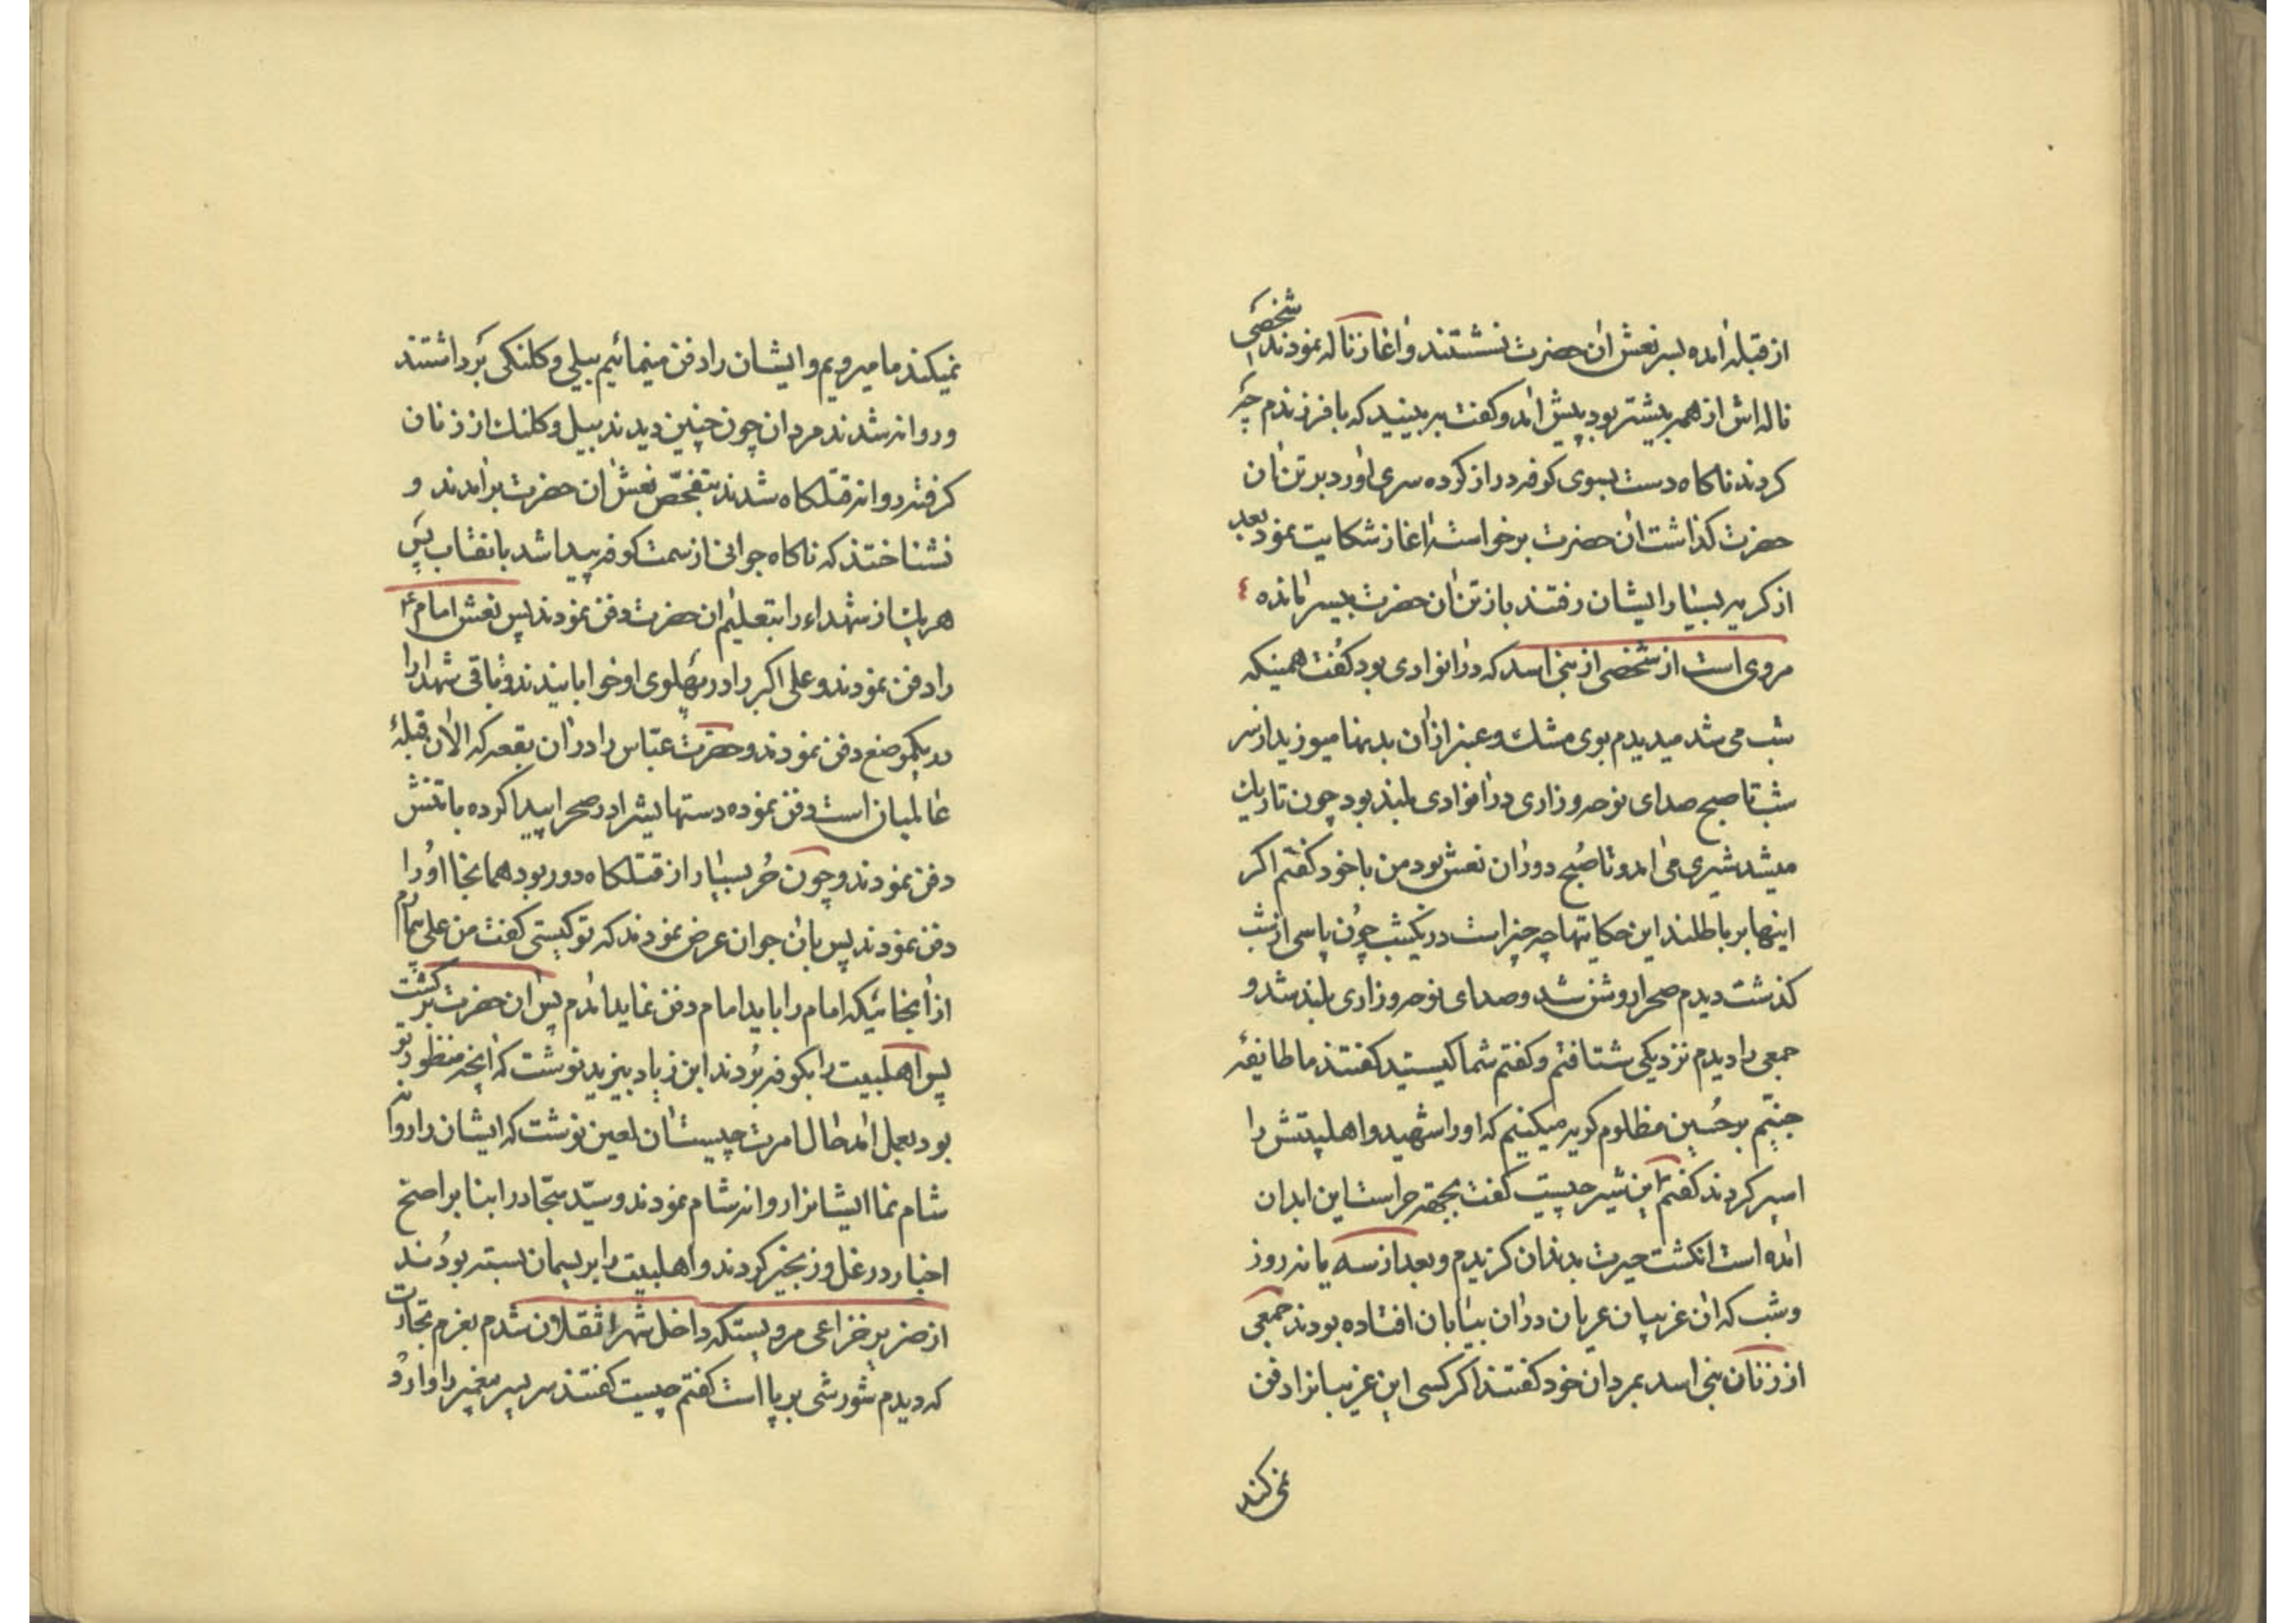 از قبله آمده بسر نعش آن حضرت نشستند و آغاز ناله نمودند شخصی
ناله‌اش از همه بیشتر بود پیش آمد و گفت به بینید که با فرزندم چه
کردند ناکاه دست بسوی کوفه دراز کرده سری آورد بر تن آن
حضرت کذاشت آن حضرت برخواست آغاز شکایت نمود بعد
از کریه بسیار ایشان رفتند باز تن آن حضرت بیسر مانده
مروی است از شخصی از بنی اسد که در آنوادی بود کفت همینکه
شب می شد میدیدم بوی مشک و عنبر از آن بدنها میوزید از سر
شب تا صبح صدای نوحه و زاری در آنوادی بلند بود چون تاریک
میشد شیری می آمد و تا صبح دور آن نعش بود من با خود کفتم اکر
اینها بر باطلند این حکایتها چه چیز است در یکشب چون پاسی از شب
کذشت دیدم صحرا روشن شد و صدای نوحه و زاری بلند شد و
جمعی را دیدم نزدیکی شتافتم و کفتم شما کیستید کفتند ما طایفهٔ
جنیّم بر حُسین مظلوم کریه میکنیم که او را شهید و اهلبیتش را
اسیر کردند کفتم این شیر چیست کفت بجهة حراست این ابدان
آمده است انکشت حیرت بدندان کزیدم و بعد از سه یا نه روز
و شب که آن غریبان عریان در آن بیابان افتاده بودند جمعی
از زنان بنی اسد بمردان خود کفتند اکر کسی این غریبانرا دفن
نمی کند
نمیکند ما میرویم و ایشان را دفن مینمائیم بیلی و کلنکی برداشتند
و روانه شدند مردان چون چنین دیدند بیل و کلنک از زنان
کرفته روانه قتلکاه شدند بتفحّص نعش آن حضرت برآمدند و
نشناختند که ناکاه جوانی از سمت کوفه پیدا شد با نقاب پس
هر یک از شهداء را بتعلیم آن حضرت دفن نمودند پس نعش امام ع
را دفن نمودند و علی اکبر را در پهلوی او خوابانیدند و باقی شهدا را
در یکموضع دفن نمودند و حضرت عبّاس را در آن بقعه که الآن قبلهٔ
عالمیان است دفن نموده دستهایشرا در صحرا پیدا کرده با تنش
دفن نمودند و چون حُر بسیار از قتلکاه دور بود همانجا او را
دفن نمودند پس بآن جوان عرض نمودند که تو کیستی کفت من علی
از آنجائیکه امام را باید امام دفن نماید آمدم پس آن حضرت برکشت
پس اهلبیت را بکوفه بردند ابن زیاد بیزید نوشت که آنچه منظور تو
بود بعمل آمد حال امرت چیست آن لعین نوشت که ایشان را روانه
شام نما ایشانرا روانه شام نمودند و سیّد سجّاد را بنا بر اصح
اخبار در غل و زنجیر کردند و اهلبیت را بریسمان بسته بودند
از ضریر خزاعی مرویستکه داخل شهر عثقلان شدم بعزم تجارت
که دیدم شورشی بر پا است کفتم چیست کفتند سر پسر پیغمبر را وارد